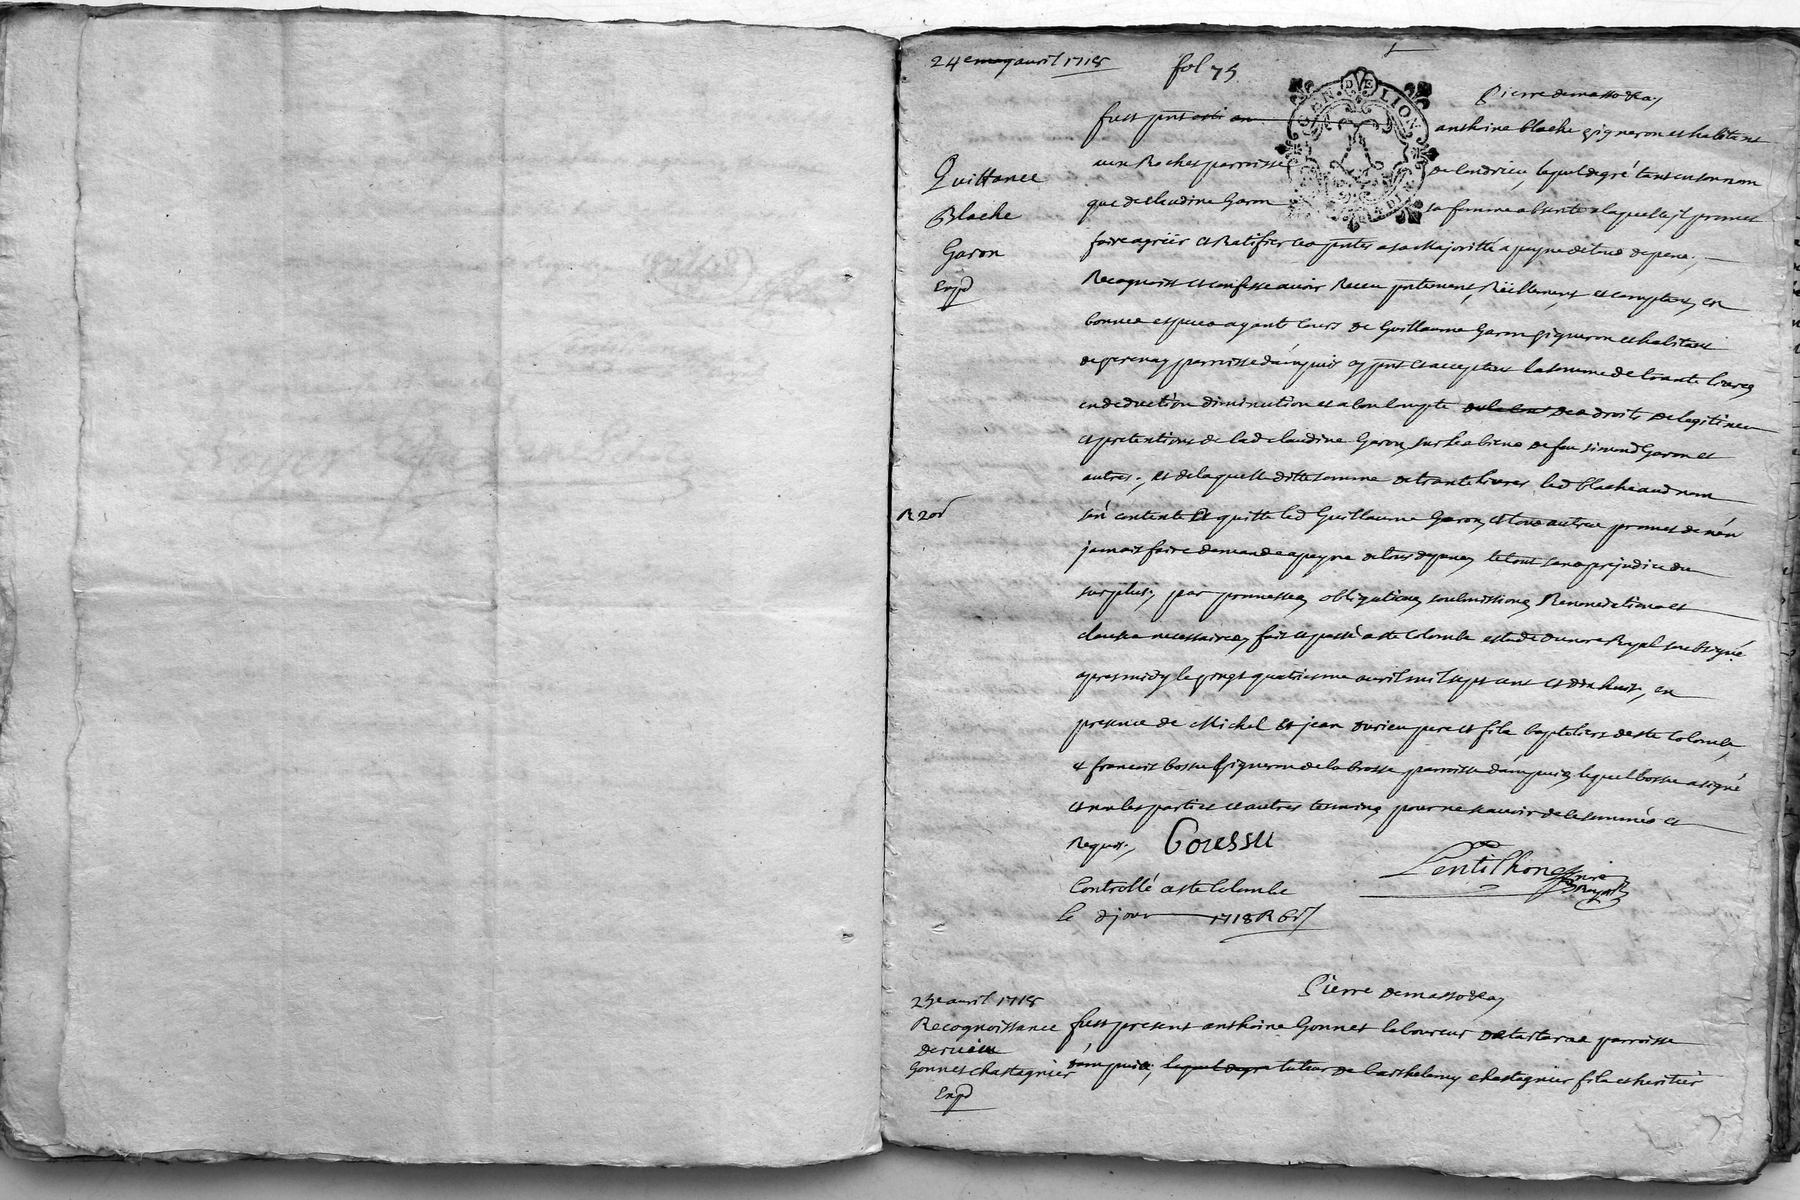 24e avril 1718
fol 75
GEN. DE LION
Pierre demassodray
fust pnt anthoine blache vigneron et habitant
aux Roches parroisse de Condrieu, lequel de gré tant en son nom
Quittance
Blache
Garon
Exp̃d
que de Claudine Garon sa femme absente a laquelle il promet
faire agréer et Ratifier ces pntes a sa Majoritté a peyne de tous depens,
Recognoist et confesse avoir Receu pntement, Réellement, et comptant, en
bonnes espèces ayant Cours de Guillaume Garon vigneron et habitant
de verenay parroisse d'ampuis cy pnt et acceptant la somme de trante livres
en deduction diminution et a bon compte des droits de legitime
et pretentions de lad claudine Garon, sur les biens de feu simond Garon et
autres, et de laquelle ditte somme de trante livres led blache aud nom
R 20s
s'en contente Et quitte led Guillaume Garon, et tous autres promet de n'en
jamais faire demande a peyne de tous depens, le tout sans prejudice du
surplus, par promesses, obligations, soubmissions, Renonciations et
clauses necessaires, fait et passé a ste Colombe estude du nore Royal soubsigné
apres midy le vingt quatriesme avril mil sept cent et dix huit, en
presence de Michel Et jean durieu pere et fils bapteliers de ste Colombe
et francois bossu vigneron de la brosse parroisse d'ampuis, lequel bossu a signé
et non les parties et autres tesmoins pour ne scavoir de ce sommés et
Requis,
Boussu
Lentilhon nore Royal
Controllé a ste Colombe
le d jour 1718 R 6s
Pierre demassodray
25e avril 1718
Recognoissance
Gonnet chastagnier
Exp̃d
fust present anthoine Gonnet laboureur de tartaras parroisse
d'ampuis, lequel de gré tuteur de barthelemy chastagnier fils et heritier